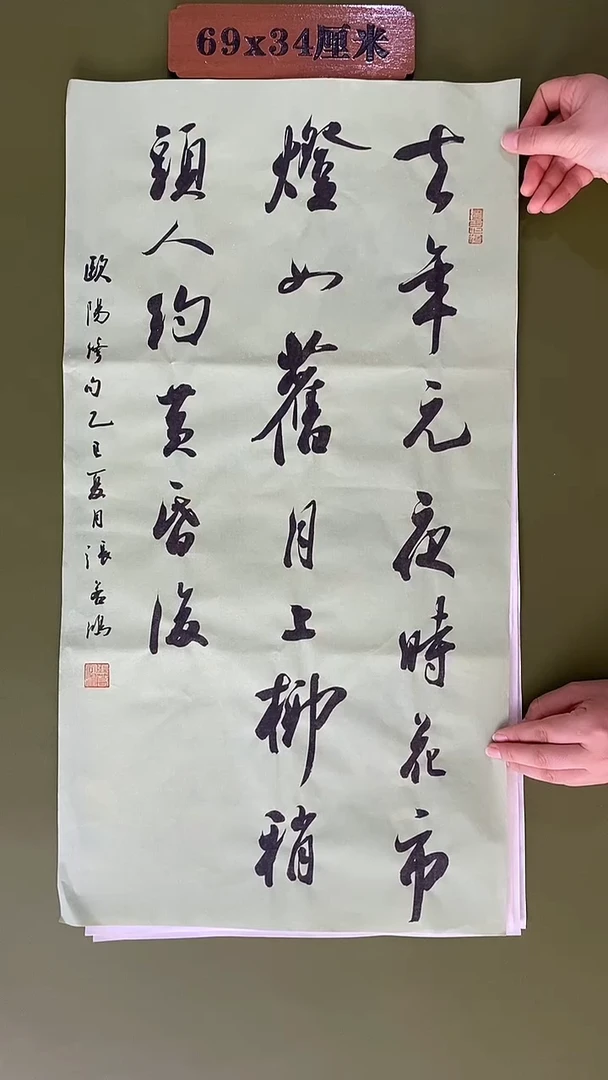 69x34厘米
去年元夜時花市
燈如舊月上柳稍
頭人約黃昏後
歐陽修句乙巳夏月張若鴻